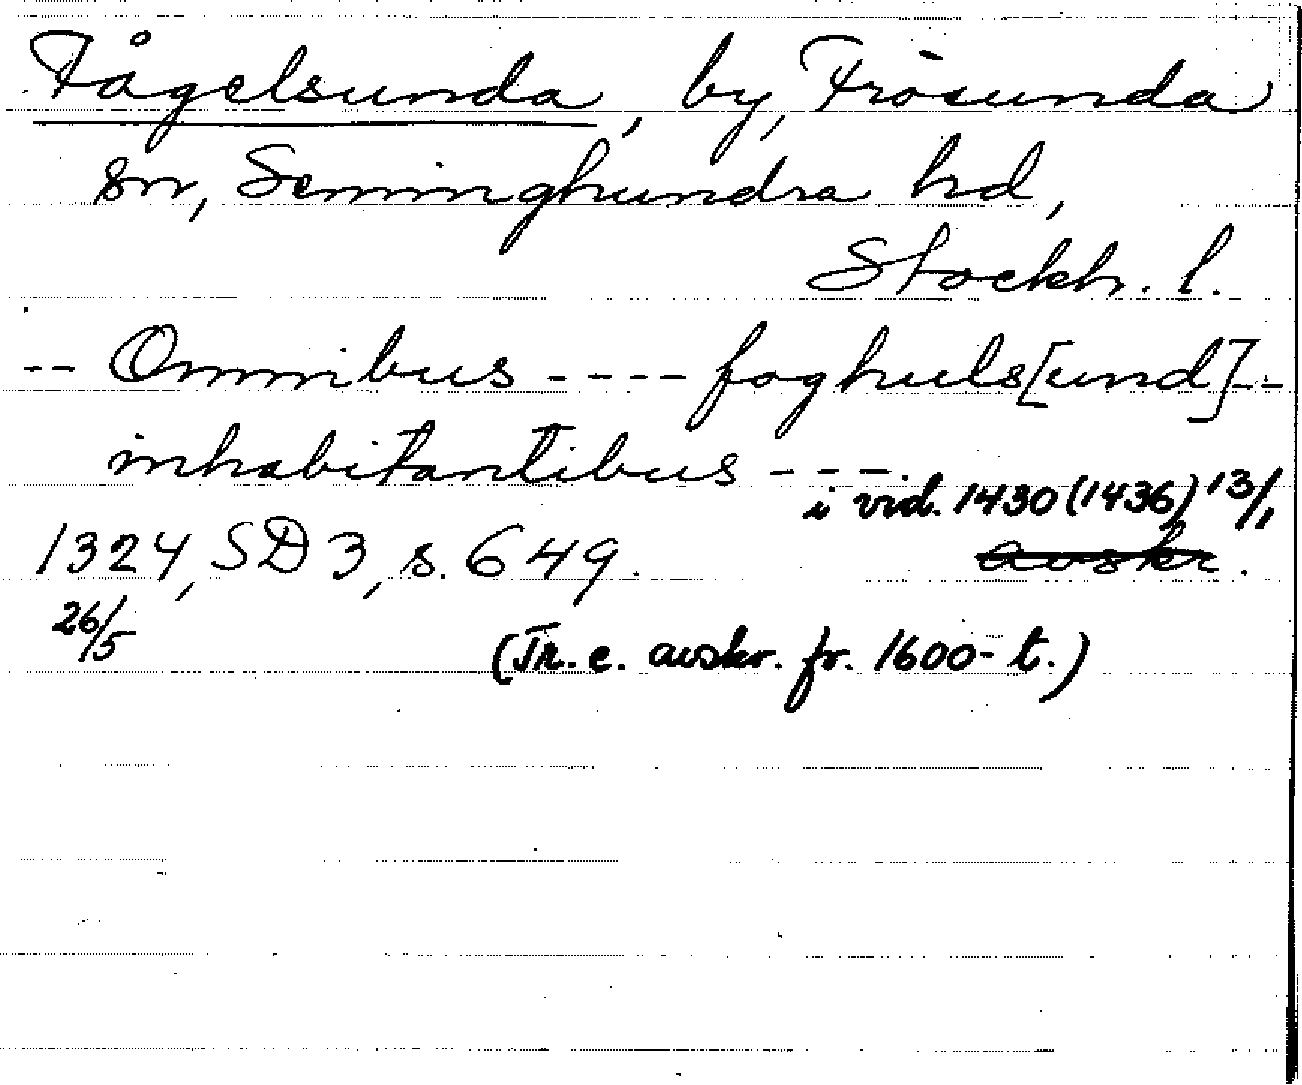 Fågelsunda, by, Frösunda
sn, Seminghundra hd,
Stockh. l.
-- Omnibus ---- foghuls[und]--
inhabitantibus ---
i vid. 1430 (1436) 13/1
1324, SD 3, s. 649. avskr.
26/5
(Tr. e. avskr. fr. 1600-t.)